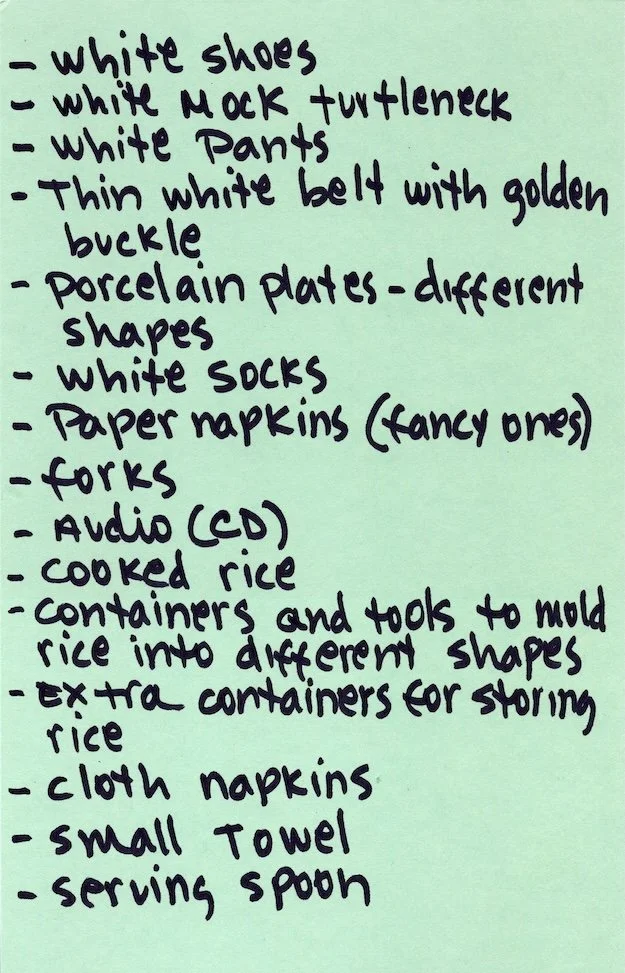 - white shoes
- white Mock turtleneck
- white Pants
- Thin white belt with golden
buckle
- Porcelain plates - different
shapes
- white socks
- Paper napkins (fancy ones)
- forks
- Audio (CD)
- cooked rice
- containers and tools to mold
rice into different shapes
- Extra containers for storing
rice
- cloth napkins
- small Towel
- serving spoon